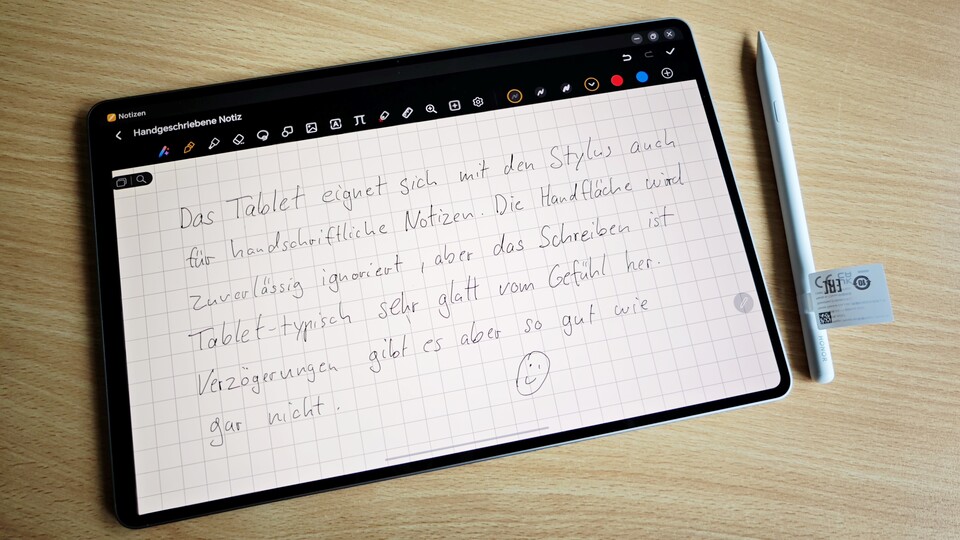 Notizen
Handgeschriebene Notiz
Das Tablet eignet sich mit den Stylus auch
für handschriftliche Notizen. Die Handfläche wird
zuverlässig ignoriert, aber das Schreiben ist
Tablet-typisch sehr glatt vom Gefühl her.
Verzögerungen gibt es aber so gut wie
gar nicht.
HONOR